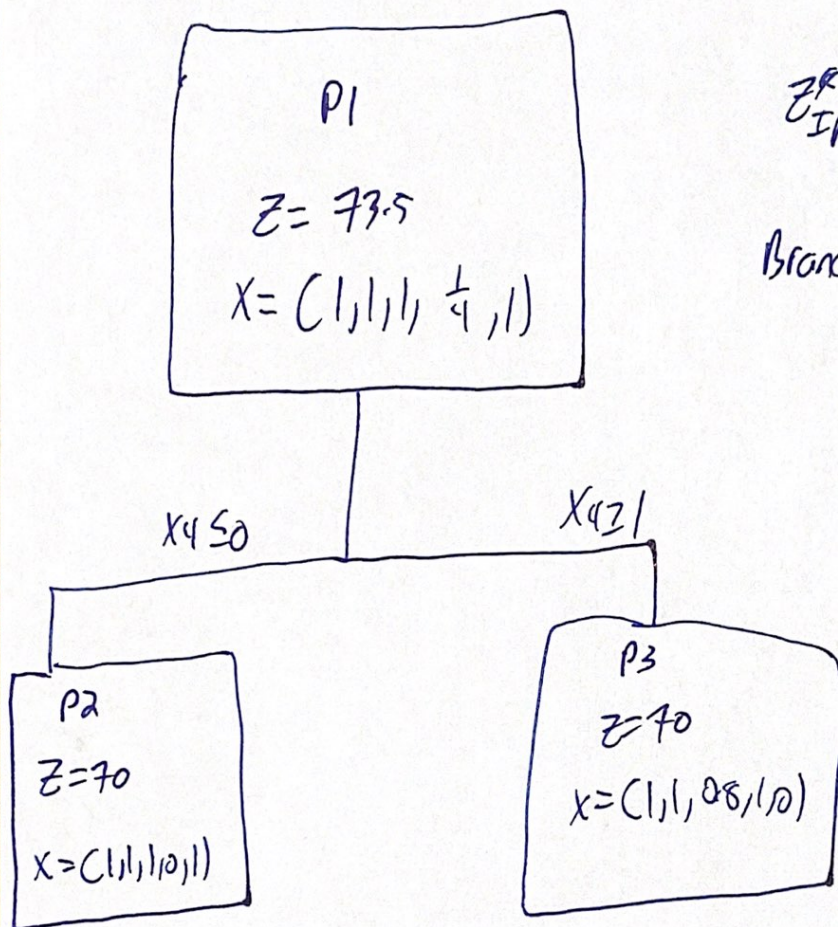 P1
Z = 73.5
X = (1, 1, 1, 1/4, 1)
X4 ≤ 0
X4 ≥ 1
P2
Z = 70
X = (1, 1, 1, 0, 1)
P3
Z = 70
X = (1, 1, 0.8, 1, 0)